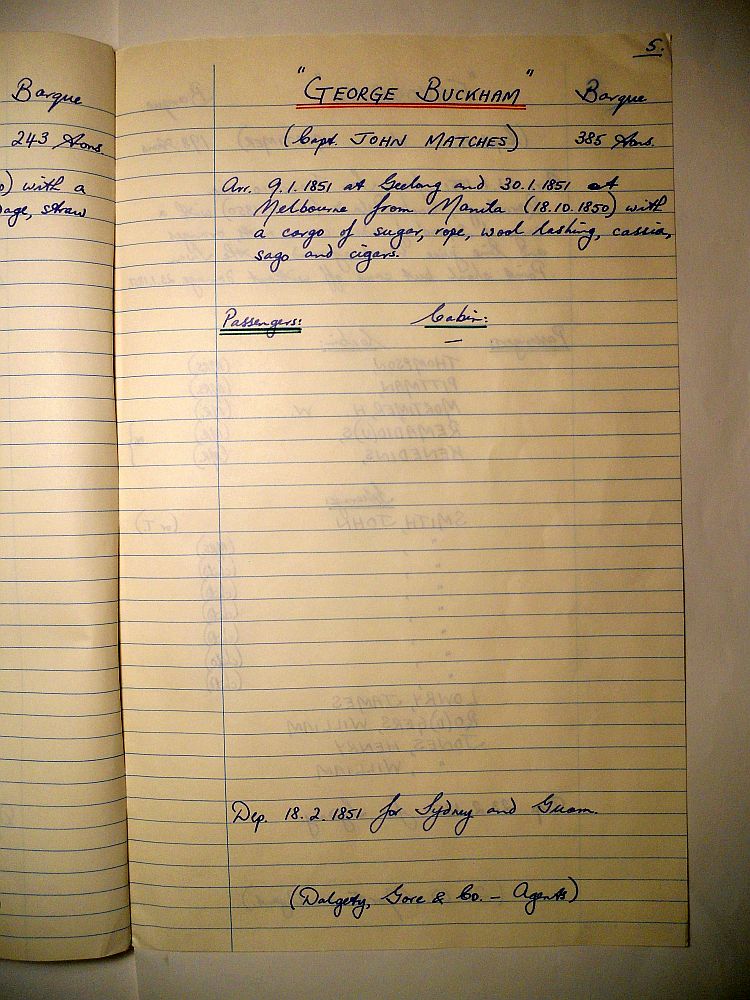 Barque
243 Tons.
) with a
age, straw
5.
"GEORGE BUCKHAM" Barque
(Capt. JOHN MATCHES) 385 Tons.
Arr. 9.1.1851 at Geelong and 30.1.1851 at
Melbourne from Manila (18.10.1850) with
a cargo of sugar, rope, wool lashing, cassia,
sago and cigars.
Passengers: Cabin:
—
Dep. 18.2.1851 for Sydney and Guam.
(Dalgety, Gore & Co. - Agents)